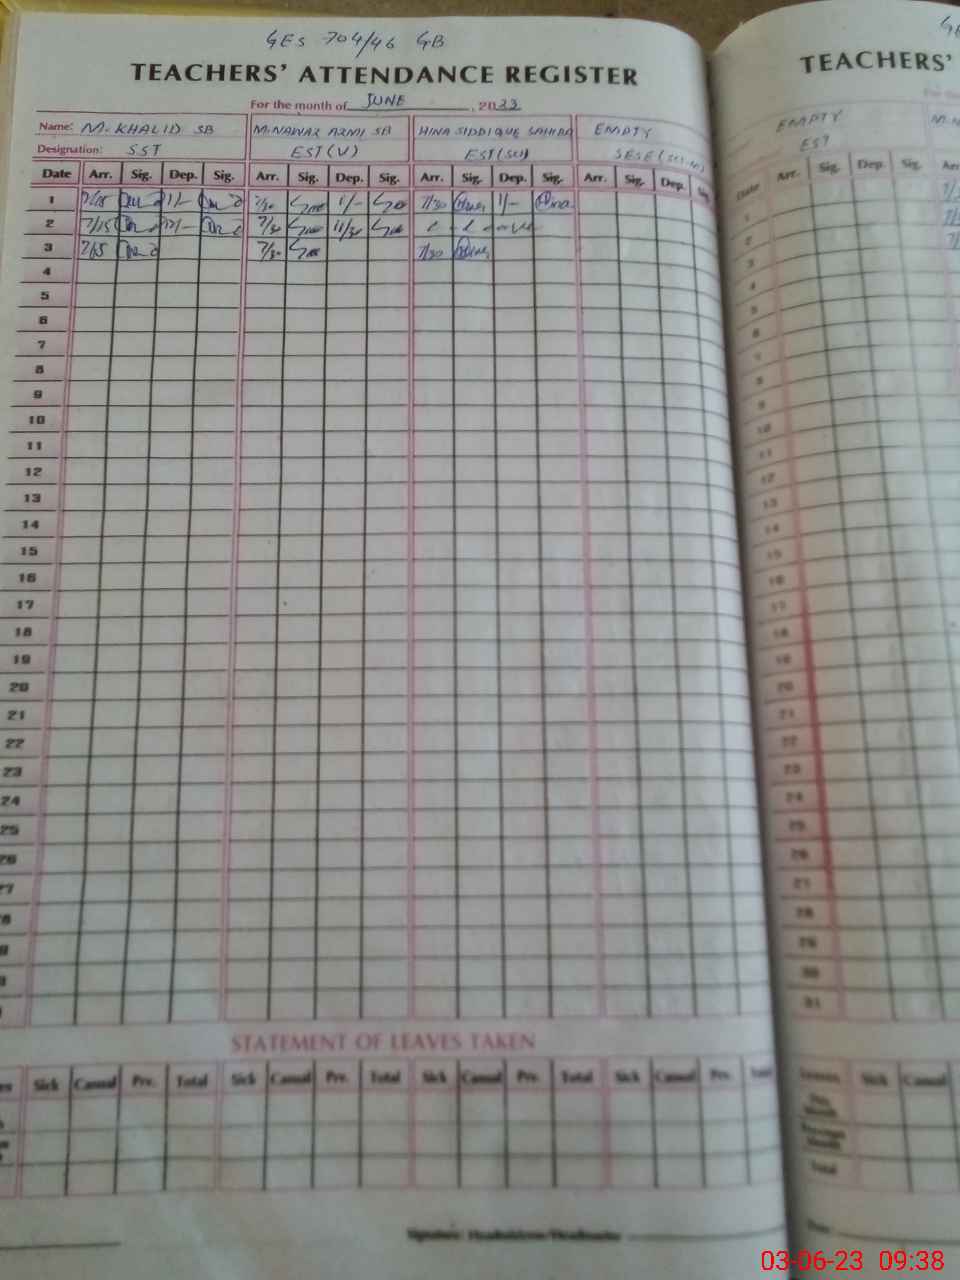 GES 704/46 GB
TEACHERS' ATTENDANCE REGISTER
For the month of JUNE, 2023
Name: M. KHALID SB M. NAWAZ AZMI SB HINA SIDDIQUE SAHIBA EMPTY
Designation: SST EST (V) EST (SCI) SESE
Date Arr. Sig. Dep. Sig. Arr. Sig. Dep. Sig. Arr. Sig. Dep. Sig. Arr. Sig. Dep. Sig.
1 7/15 1/- 7/30 1/- 7/30 Hina 1/- Hina
2 7/15 12/- 7/30 11/30 L-e-a-v-e
3 7/15 7/30 7/30 Hina
4
5
6
7
8
9
10
11
12
13
14
15
16
17
18
19
20
21
22
23
24
25
26
27
STATEMENT OF LEAVES TAKEN
Sick Casual Prv. Total Sick Casual Prv. Total Sick Casual Prv. Total Sick Casual Prv. Total
Signature: Headmistress/Headmaster
TEACHERS'
EMPTY
EST
Date Arr. Sig. Dep. Sig. Arr.
1
2
3
4
5
6
7
8
9
10
11
12
13
14
15
16
17
18
19
20
21
22
23
24
25
26
27
28
29
30
31
Leaves Sick Casual
This Month
Previous Month
Total
Date
03-06-23 09:38